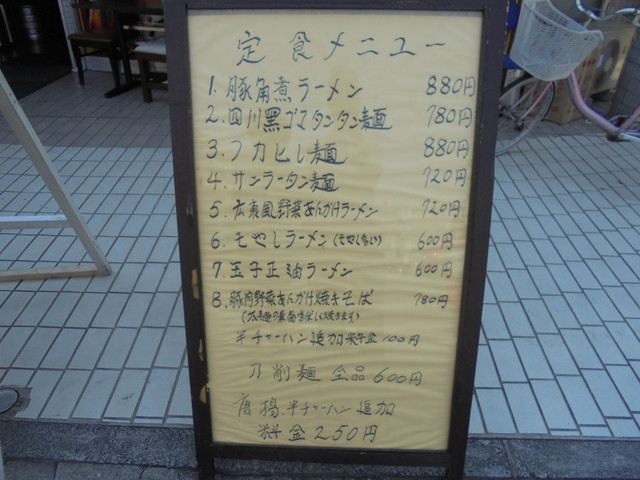 定食メニュー
1. 豚角煮ラーメン 880円
2. 四川黒ゴマタンタン麺 780円
3. フカヒレ麺 880円
4. サンラータン麺 720円
5. 広東風野菜あんかけラーメン 720円
6. モやしラーメン(モやし多い) 600円
7. 玉子正油ラーメン 600円
8. 豚肉野菜あんかけ焼きそば 780円
半チャーハン追加料金100円
刀削麺 全品600円
唐揚.半チャーハン追加
料金250円